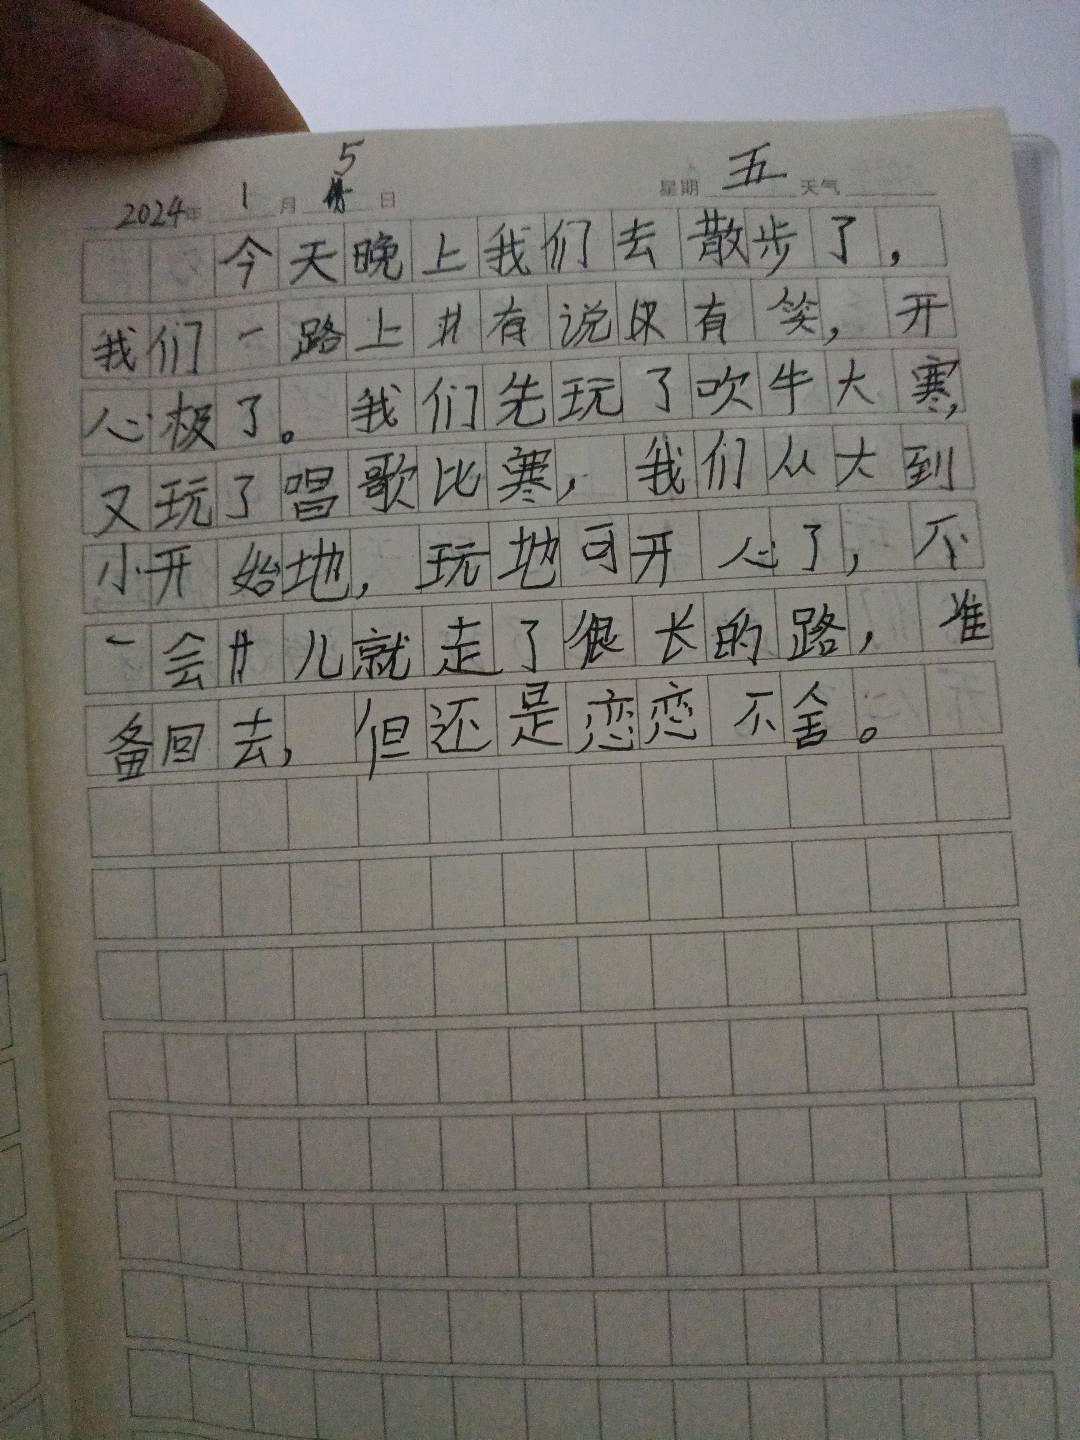 2024年 1月 5日 星期 五 天气
今天晚上我们去散步了，
我们一路上有说有笑，开
心极了。我们先玩了吹牛大寒，
又玩了唱歌比寒，我们从大到
小开始地，玩地可开心了，不
一会儿就走了很长的路，准
备回去，但还是恋恋不舍。